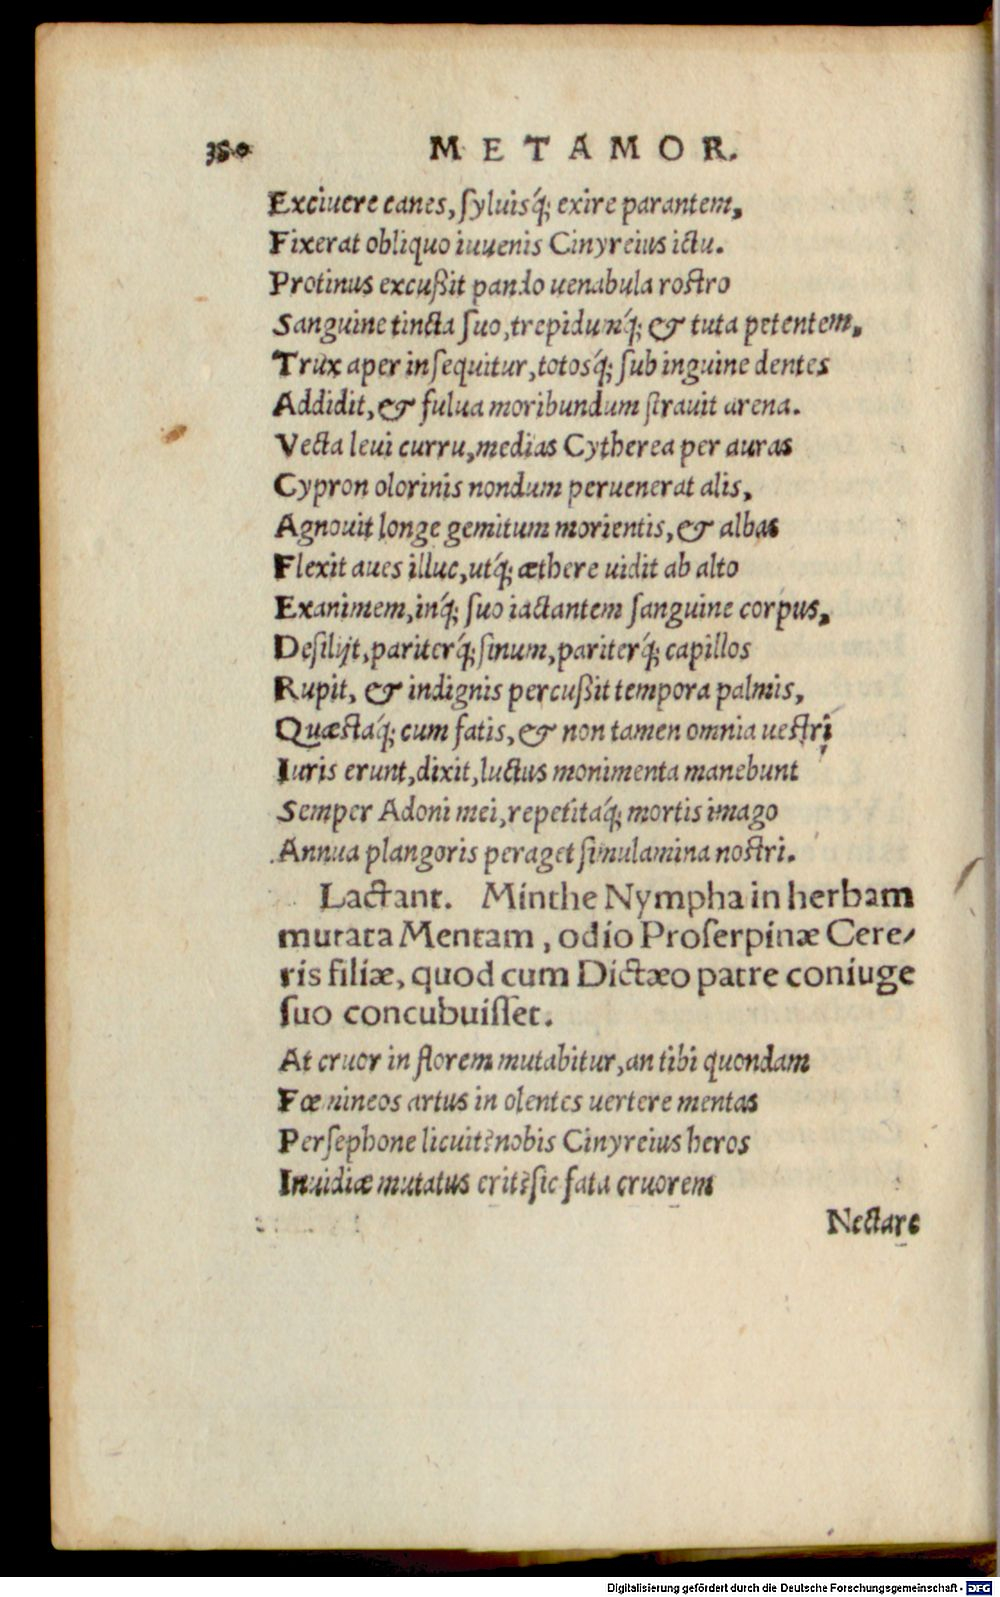 380 METAMOR.
Exciuere canes, ſyluisq́; exire parantem,
Fixerat obliquo iuuenis Cinyreius ictu.
Protinus excußit pando uenabula roſtro
Sanguine tincta ſuo, trepidunq́; & tuta petentem,
Trux aper inſequitur, totosq́; ſub inguine dentes
Addidit, & fulua moribundum ſtrauit arena.
Vecta leui curru, medias Cytherea per auras
Cypron olorinis nondum peruenerat alis,
Agnouit longe gemitum morientis, & albas
Flexit aues illuc, utq́; æthere uidit ab alto
Exanimem, inq́; ſuo iactantem ſanguine corpus,
Deſilijt, pariterq́; ſinum, pariterq́; capillos
Rupit, & indignis percußit tempora palmis,
Quæstaq́; cum fatis, & non tamen omnia ueſtri
Iuris erunt, dixit, luctus monimenta manebunt
Semper Adoni mei, repetitaq́; mortis imago
Annua plangoris peraget ſimulamina noſtri.
Lactant. Minthe Nympha in herbam
mutata Mentam, odio Proſerpinæ Cere/
ris filiæ, quod cum Dictæo patre coniuge
ſuo concubuiſſet.
At cruor in florem mutabitur, an tibi quondam
Fœmineos artus in olentes uertere mentas
Perſephone licuit? nobis Cinyreius heros
Inuidiæ mutatus erit? ſic fata cruorem
Nectare
Digitalisierung gefördert durch die Deutsche Forschungsgemeinschaft - DFG